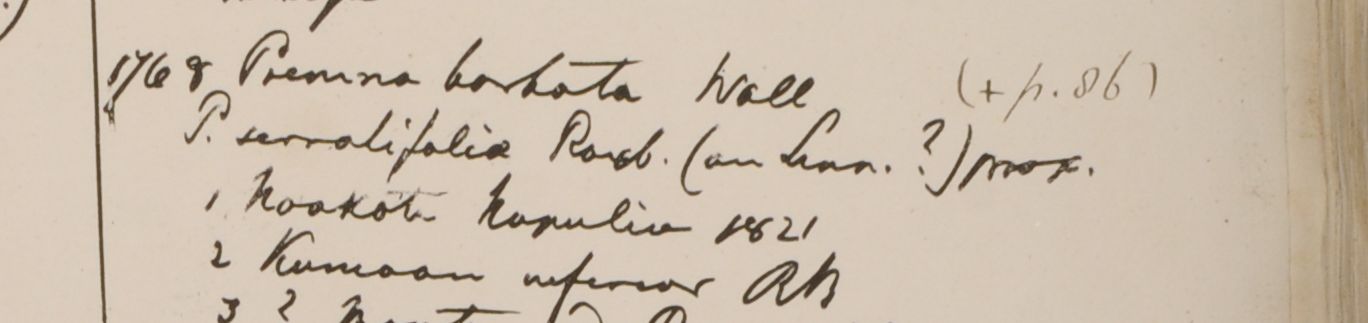 1768 Premna barbata Wall (+ p. 86)
P. serratifolia Roxb. (an Linn. ?) prox.
1 Noakote Napulia 1821
2 Kumaon inferior RB
3 2